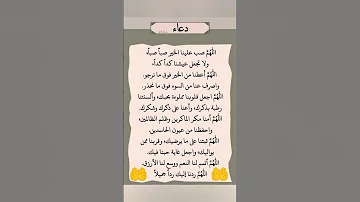 دعاء
اللَّهُمَّ صب علينا الخير صباً صباً،
ولا تجعل عيشنا كداً كداً،
اللَّهُمَّ أعطنا من الخير فوق ما نرجو،
واصرف عنا من السوء فوق ما نحذر.
اللَّهُمَّ اجعل قلوبنا مملوءة بحبك، وألسنتنا
رطبة بذكرك، وأعنا على ذكرك وشكرك.
اللَّهُمَّ أمنا مكر الماكرين وظلم الظالمين،
واحفظنا من عيون الحاسدين.
اللَّهُمَّ ثبتنا على ما يرضيك، وقربنا ممن
يواليك، واجعل غاية حبنا فيك.
اللَّهُمَّ أتمم لنا النعم ووسع لنا الأرزاق.
اللَّهُمَّ ردنا إليك رداً جميلاً